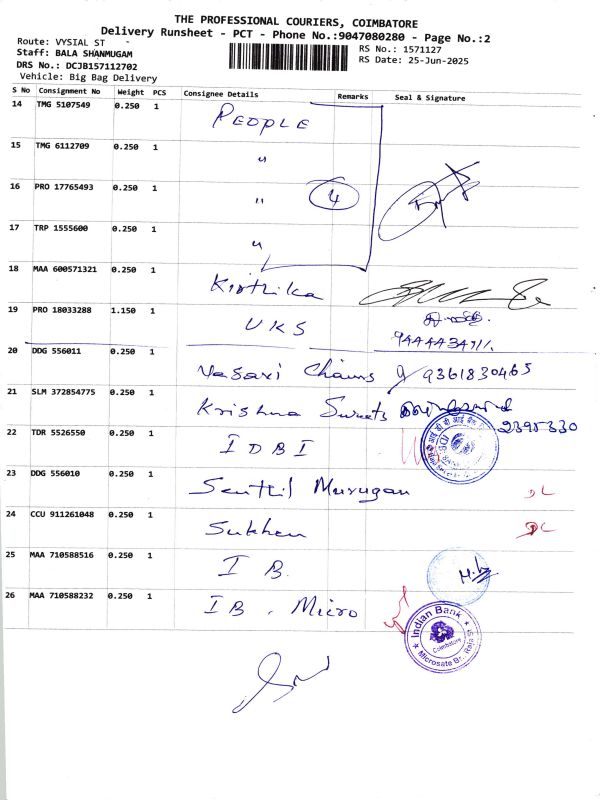 THE PROFESSIONAL COURIERS, COIMBATORE
Delivery Runsheet - PCT - Phone No.:9047080280 - Page No.:2
Route: VYSIAL ST -
RS No.: 1571127
Staff: BALA SHANMUGAM
RS Date: 25-Jun-2025
DRS No.: DCJB157112702
Vehicle: Big Bag Delivery
S No Consignment No Weight PCS Consignee Details Remarks Seal & Signature
14 TMG 5107549 0.250 1 PEOPLE
15 TMG 6112709 0.250 1 "
16 PRO 17765493 0.250 1 " 4
17 TRP 1555600 0.250 1 "
18 MAA 600571321 0.250 1 Kirthika
19 PRO 18033288 1.150 1 UKS
20 DDG 556011 0.250 1 Vasavi Chains 9361830465
21 SLM 372854775 0.250 1 Krishna Sweets
2395330
22 TDR 5526550 0.250 1 IDBI
23 DDG 556010 0.250 1 Senthil Murugan DL
24 CCU 911261048 0.250 1 Sukhen DL
25 MAA 710588516 0.250 1 IB
26 MAA 710588232 0.250 1 IB. Micro
★ Indian Bank ★
Coimbatore